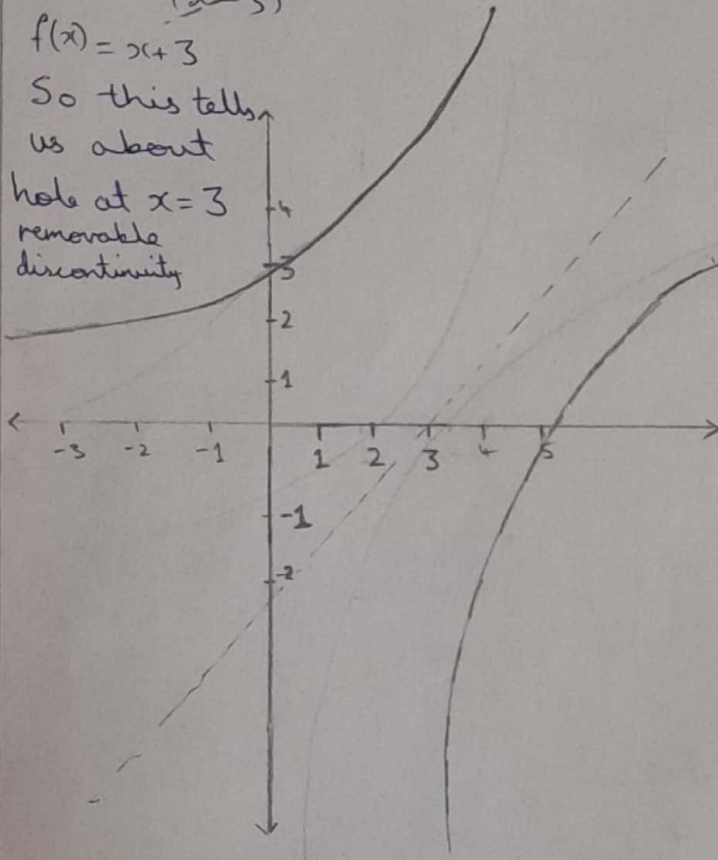 f(x) = x+3
So this tells
us about
hole at x=3
removable
discontinuity
4
3
2
1
-3 -2 -1 1 2 3 4 5
-1
-2